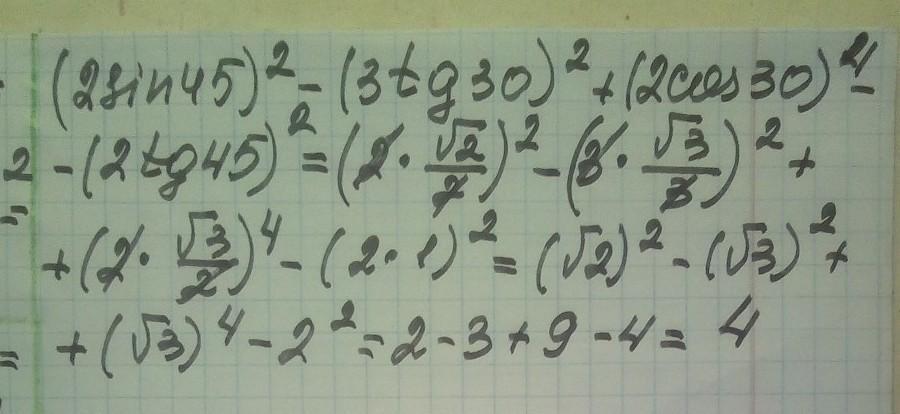 (2sin45)² - (3tg30)² + (2cos30)⁴ -
2 - (2tg45)² = (2 · √2/2)² - (3 · √3/3)² +
= + (2 · √3/2)⁴ - (2 · 1)² = (√2)² - (√3)² +
= + (√3)⁴ - 2² = 2 - 3 + 9 - 4 = 4